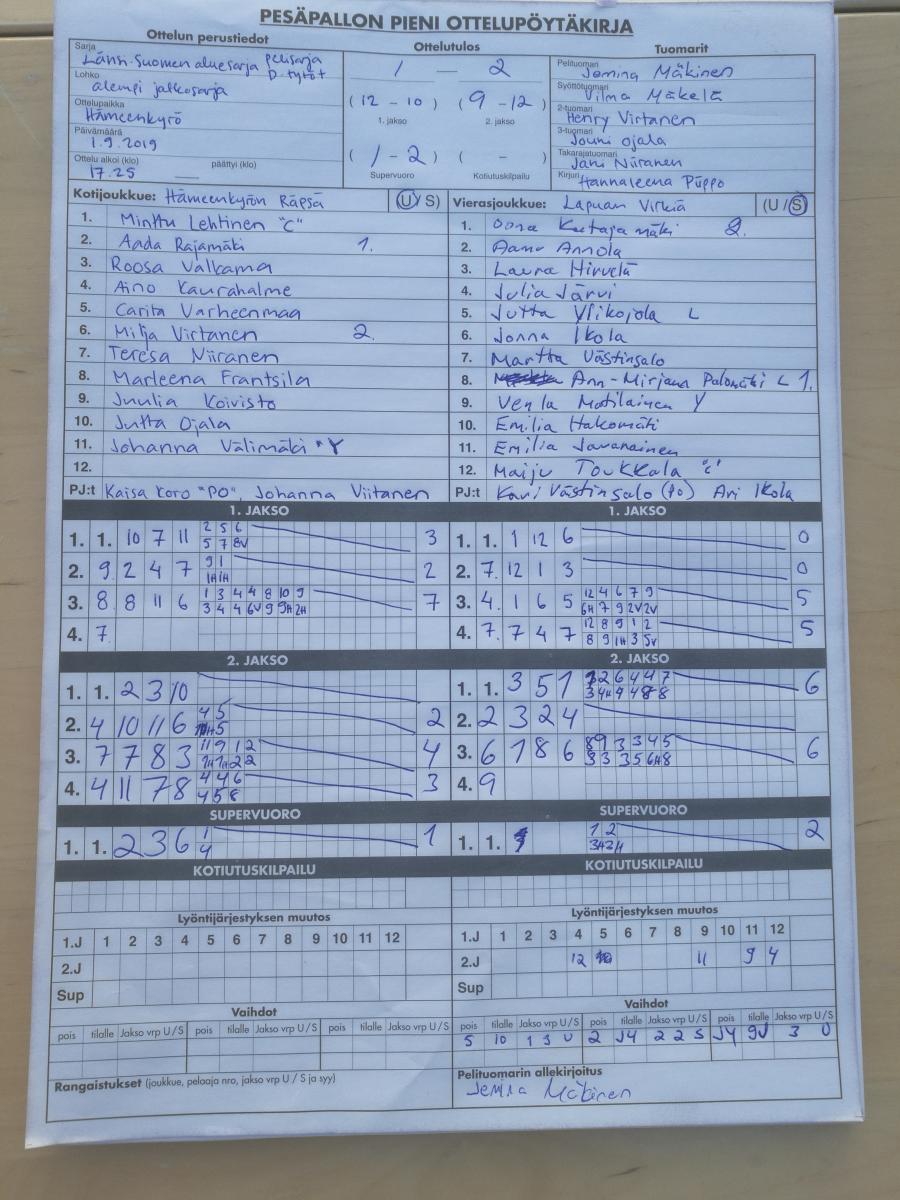 PESÄPALLON PIENI OTTELUPÖYTÄKIRJA
Ottelun perustiedot
Sarja
Länsi-Suomen aluesarja pelisarja
D-tytöt
Lohko
alempi jatkosarja
Ottelupaikka
Hämeenkyrö
Päivämäärä
1.9.2019
Ottelu alkoi (klo) päättyi (klo)
17.25
Ottelutulos
1 — 2
(12 - 10) (9 - 12)
1. jakso 2. jakso
(1 - 2) ( - )
Supervuoro Kotiutuskilpailu
Tuomarit
Pelituomari
Jemina Mäkinen
Syöttötuomari
Vilma Mäkelä
2-tuomari
Henry Virtanen
3-tuomari
Jouni Ojala
Takarajatuomari
Jani Niiranen
Kirjuri
Hannaleena Piippo
Kotijoukkue: Hämeenkyrön Räpsä (U / S)
1. Minttu Lehtinen "C"
2. Aada Rajamäki 1.
3. Roosa Valkama
4. Aino Kaurahalme
5. Carita Varheenmaa
6. Milja Virtanen 2.
7. Teresa Niiranen
8. Marleena Frantsila
9. Juulia Koivisto
10. Jutta Ojala
11. Johanna Välimäki "Y
12.
PJ:t Kaisa Koro "PO", Johanna Viitanen
Vierasjoukkue: Lapuan Virkiä (U / S)
1. Oona Keitajamäki 2.
2. Aano Annola
3. Laura Hirvelä
4. Julia Järvi
5. Jutta Ylikojola L
6. Jonna Ikola
7. Martta Västinsalo
8. Ann-Mirjana Palomäki L 1.
9. Venla Matilainen Y
10. Emilia Hakomäti
11. Emilia Javanainen
12. Maiju Toukkala "C"
PJ:t Kari Västinsalo (po) Ari Ikola
1. JAKSO
1. 1. 10 7 11 2 5 6 3
5 7 8V
2. 9 2 4 7 9 1 2
1H 1H
3. 8 8 11 6 1 3 4 4 8 10 9 7
3 4 4 6V 9 9H 2H
4. 7.
1. JAKSO
1. 1. 1 12 6 0
2. 7. 12 1 3 0
3. 4. 1 6 5 12 4 6 7 9 5
6H 7 9 2V 2V
4. 7. 7 4 7 12 8 9 1 2 5
8 9 1H 3 5V
2. JAKSO
1. 1. 2 3 10
2. 4 10 11 6 4 5 2
5
3. 7 7 8 3 11 9 1 2 4
1H 1H 2 2
4. 4 11 7 8 4 4 6 3
4 5 8
2. JAKSO
1. 1. 3 5 1 2 6 4 4 7 6
3 4H 4 4 8 8
2. 2 3 2 4
3. 6 1 8 6 8 9 3 3 4 5 6
3 3 3 5 6H 8
4. 9
SUPERVUORO
1. 1. 2 3 6 1 1
4
SUPERVUORO
1. 1. 1 2 2
3H 2H
KOTIUTUSKILPAILU
KOTIUTUSKILPAILU
Lyöntijärjestyksen muutos
1.J 1 2 3 4 5 6 7 8 9 10 11 12
2.J
Sup
Lyöntijärjestyksen muutos
1.J 1 2 3 4 5 6 7 8 9 10 11 12
2.J 12 11 9 4
Sup
Vaihdot
pois tilalle Jakso vrp U / S pois tilalle Jakso vrp U / S pois tilalle Jakso vrp U / S
Vaihdot
pois tilalle Jakso vrp U / S pois tilalle Jakso vrp U / S pois tilalle Jakso vrp U / S
5 10 1 3 U 2 J4 2 2 S J4 9V 3 U
Rangaistukset (joukkue, pelaaja nro, jakso vrp U / S ja syy)
Pelituomarin allekirjoitus
Jemina Mäkinen